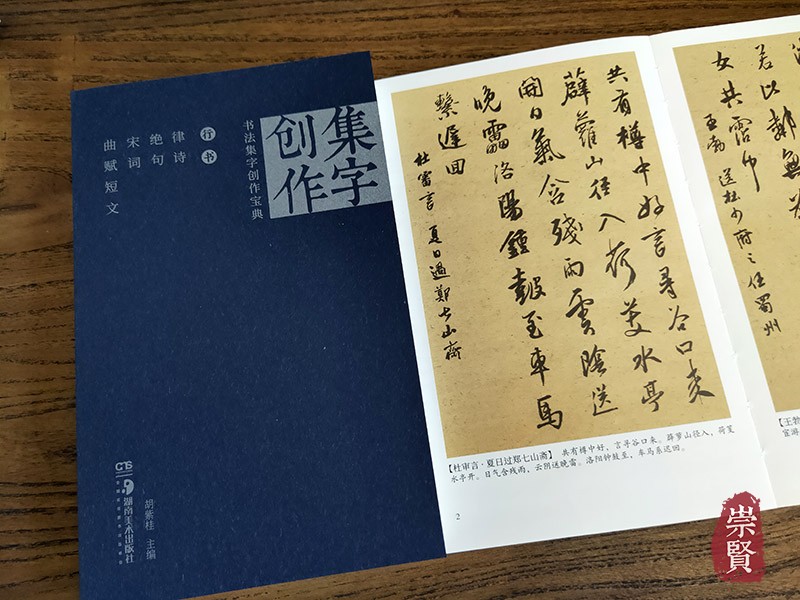 集字
创作
书法集字创作宝典
行书
律诗
绝句
宋词
曲赋短文
湖南美术出版社
胡紫桂 主编
共有樽中好言尋谷口来
薜蘿山径入荷芰水亭
開日氣含殘雨雲陰送
晚靁洛陽鐘鼓至車馬
繫遲回
杜審言 夏日過鄭七山齋
【杜审言·夏日过郑七山斋】 共有樽中好,言寻谷口来。薜萝山径入,荷芰
水亭开。日气含残雨,云阴送晚雷。洛阳钟鼓至,车马系迟回。
2
女共霑巾
王勃 送杜少府之任蜀州
【王勃
宦游
崇賢